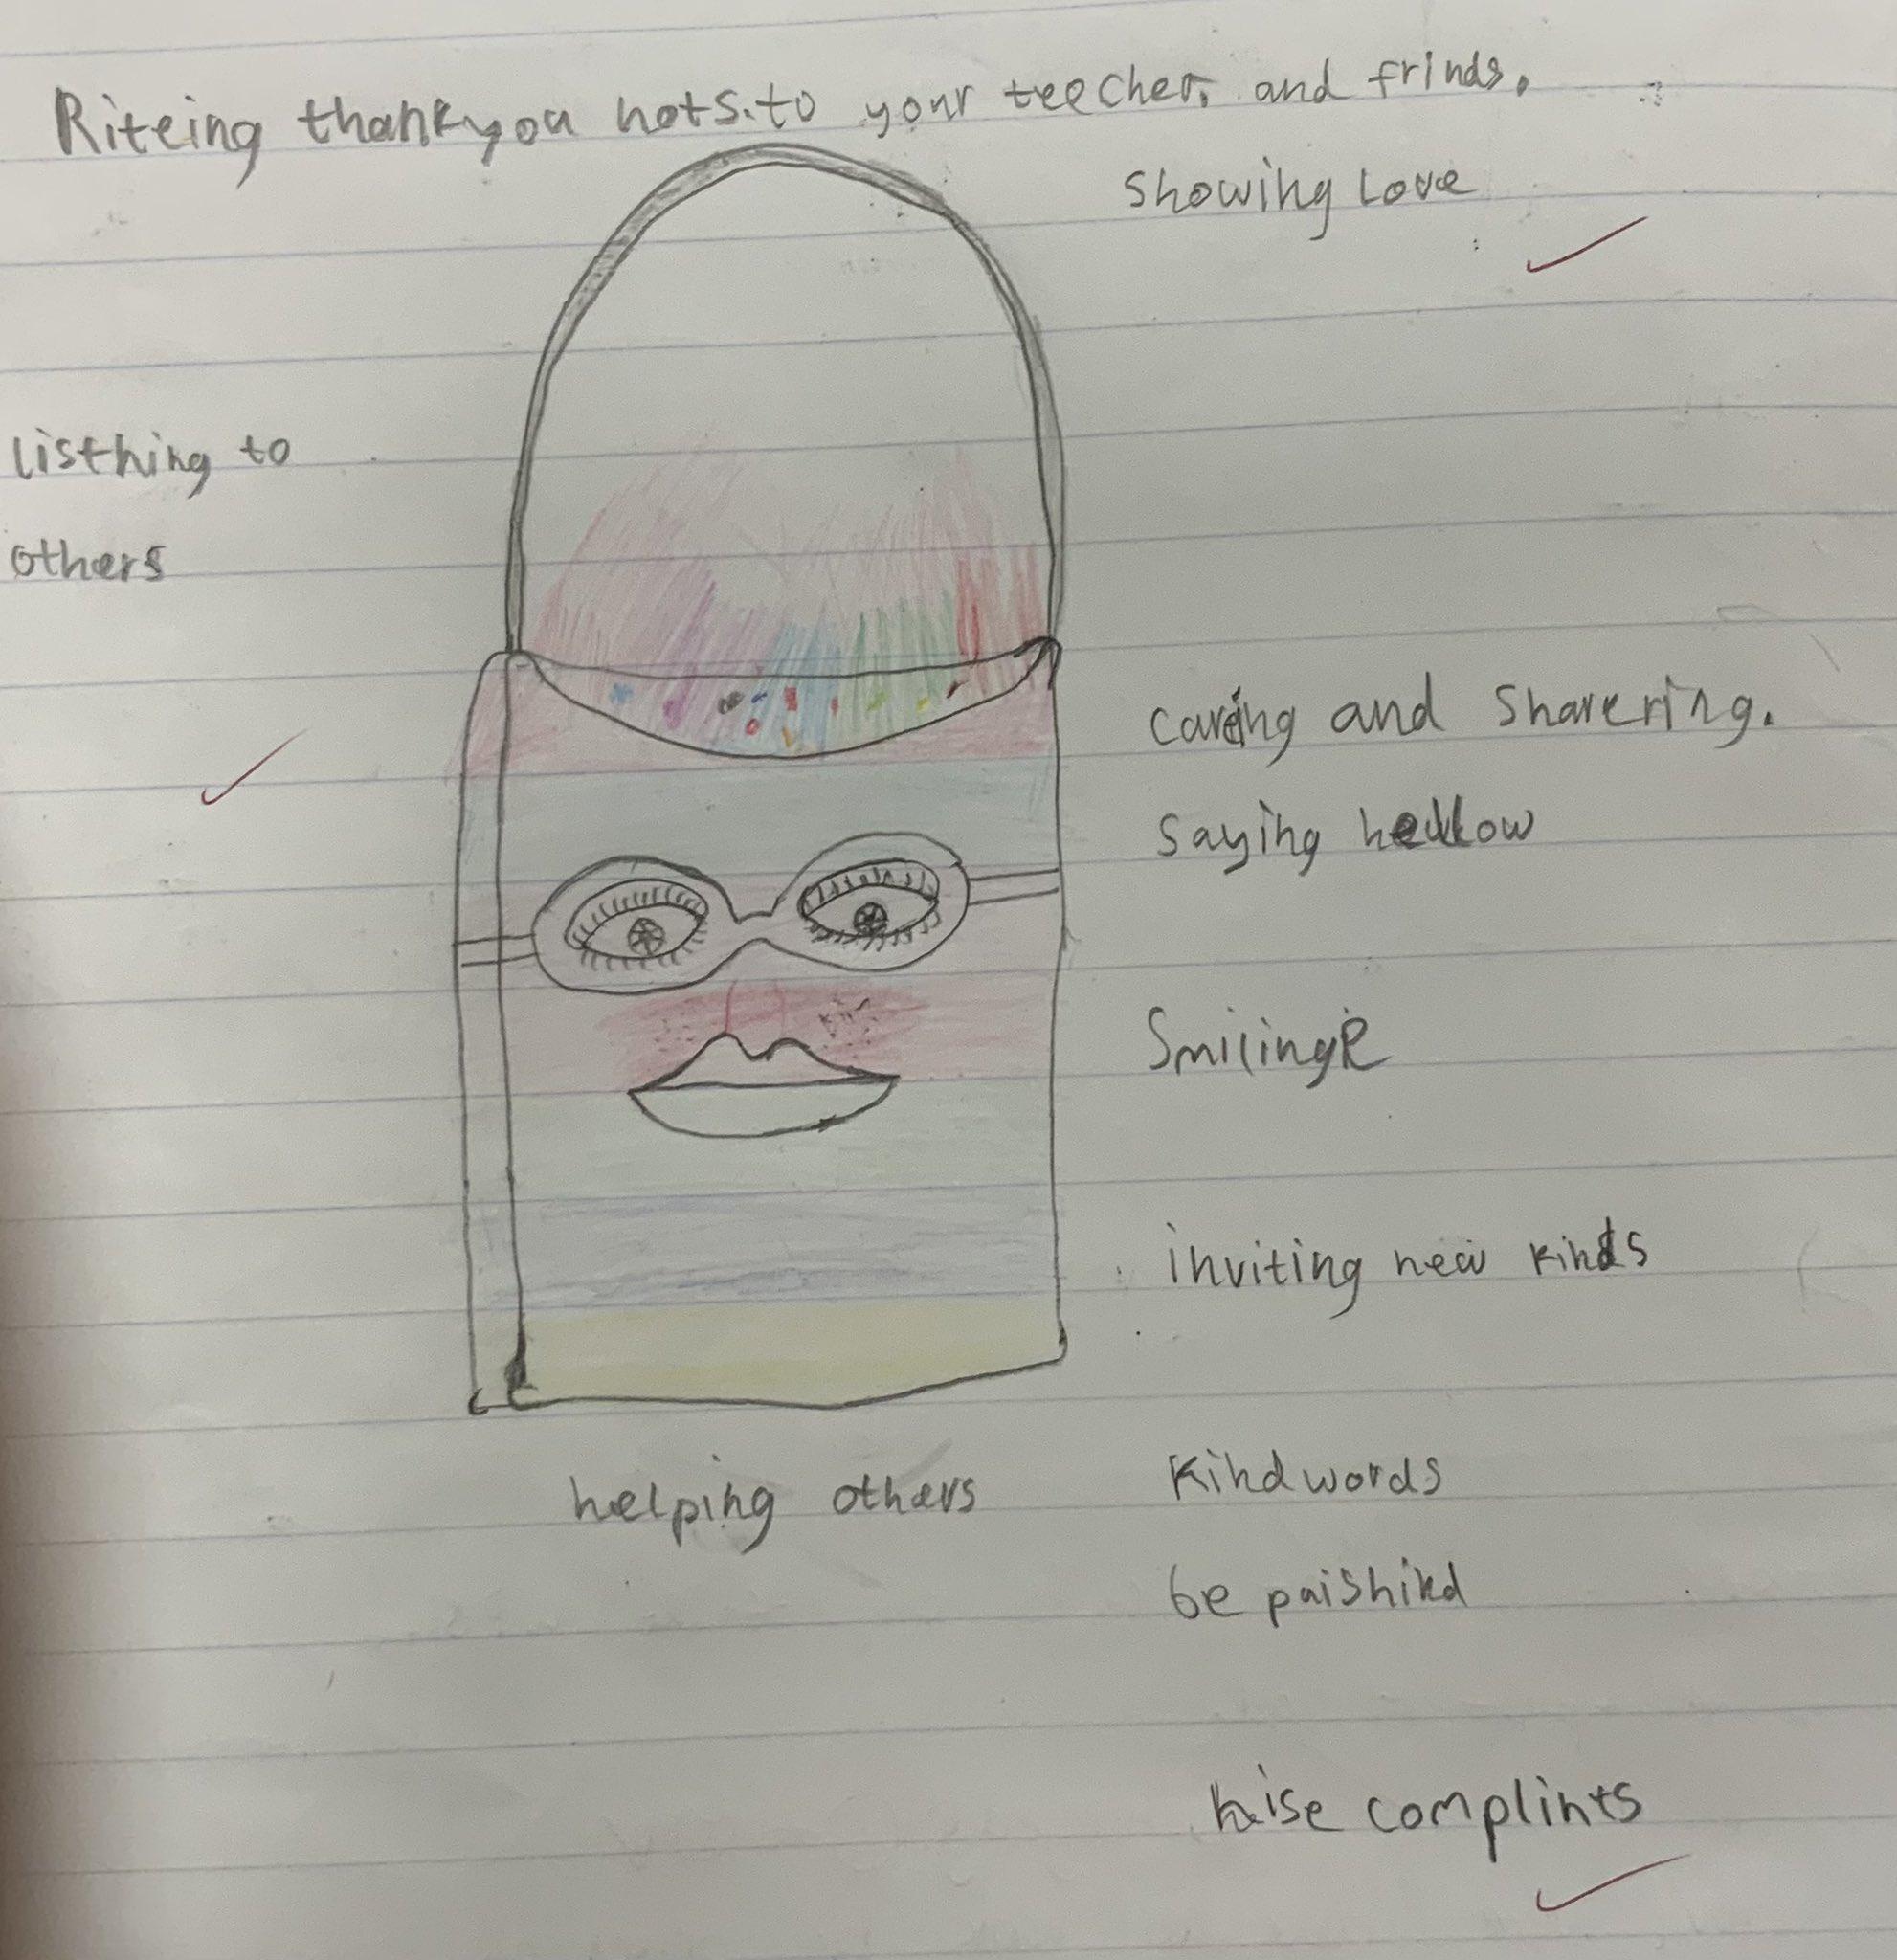 Riteing thankyou nots.to your teecher. and frinds.
showing Love
listhing to
others
careing and sharering.
saying hellow
Smiling
inviting new kinds
helping others
Kindwords
be paishind
naise complints